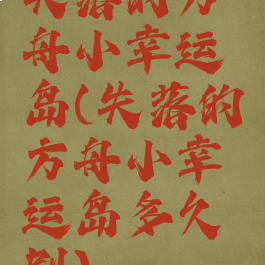 失落的方
舟小幸运
岛(失落的
方舟小幸
运岛多久
刷)